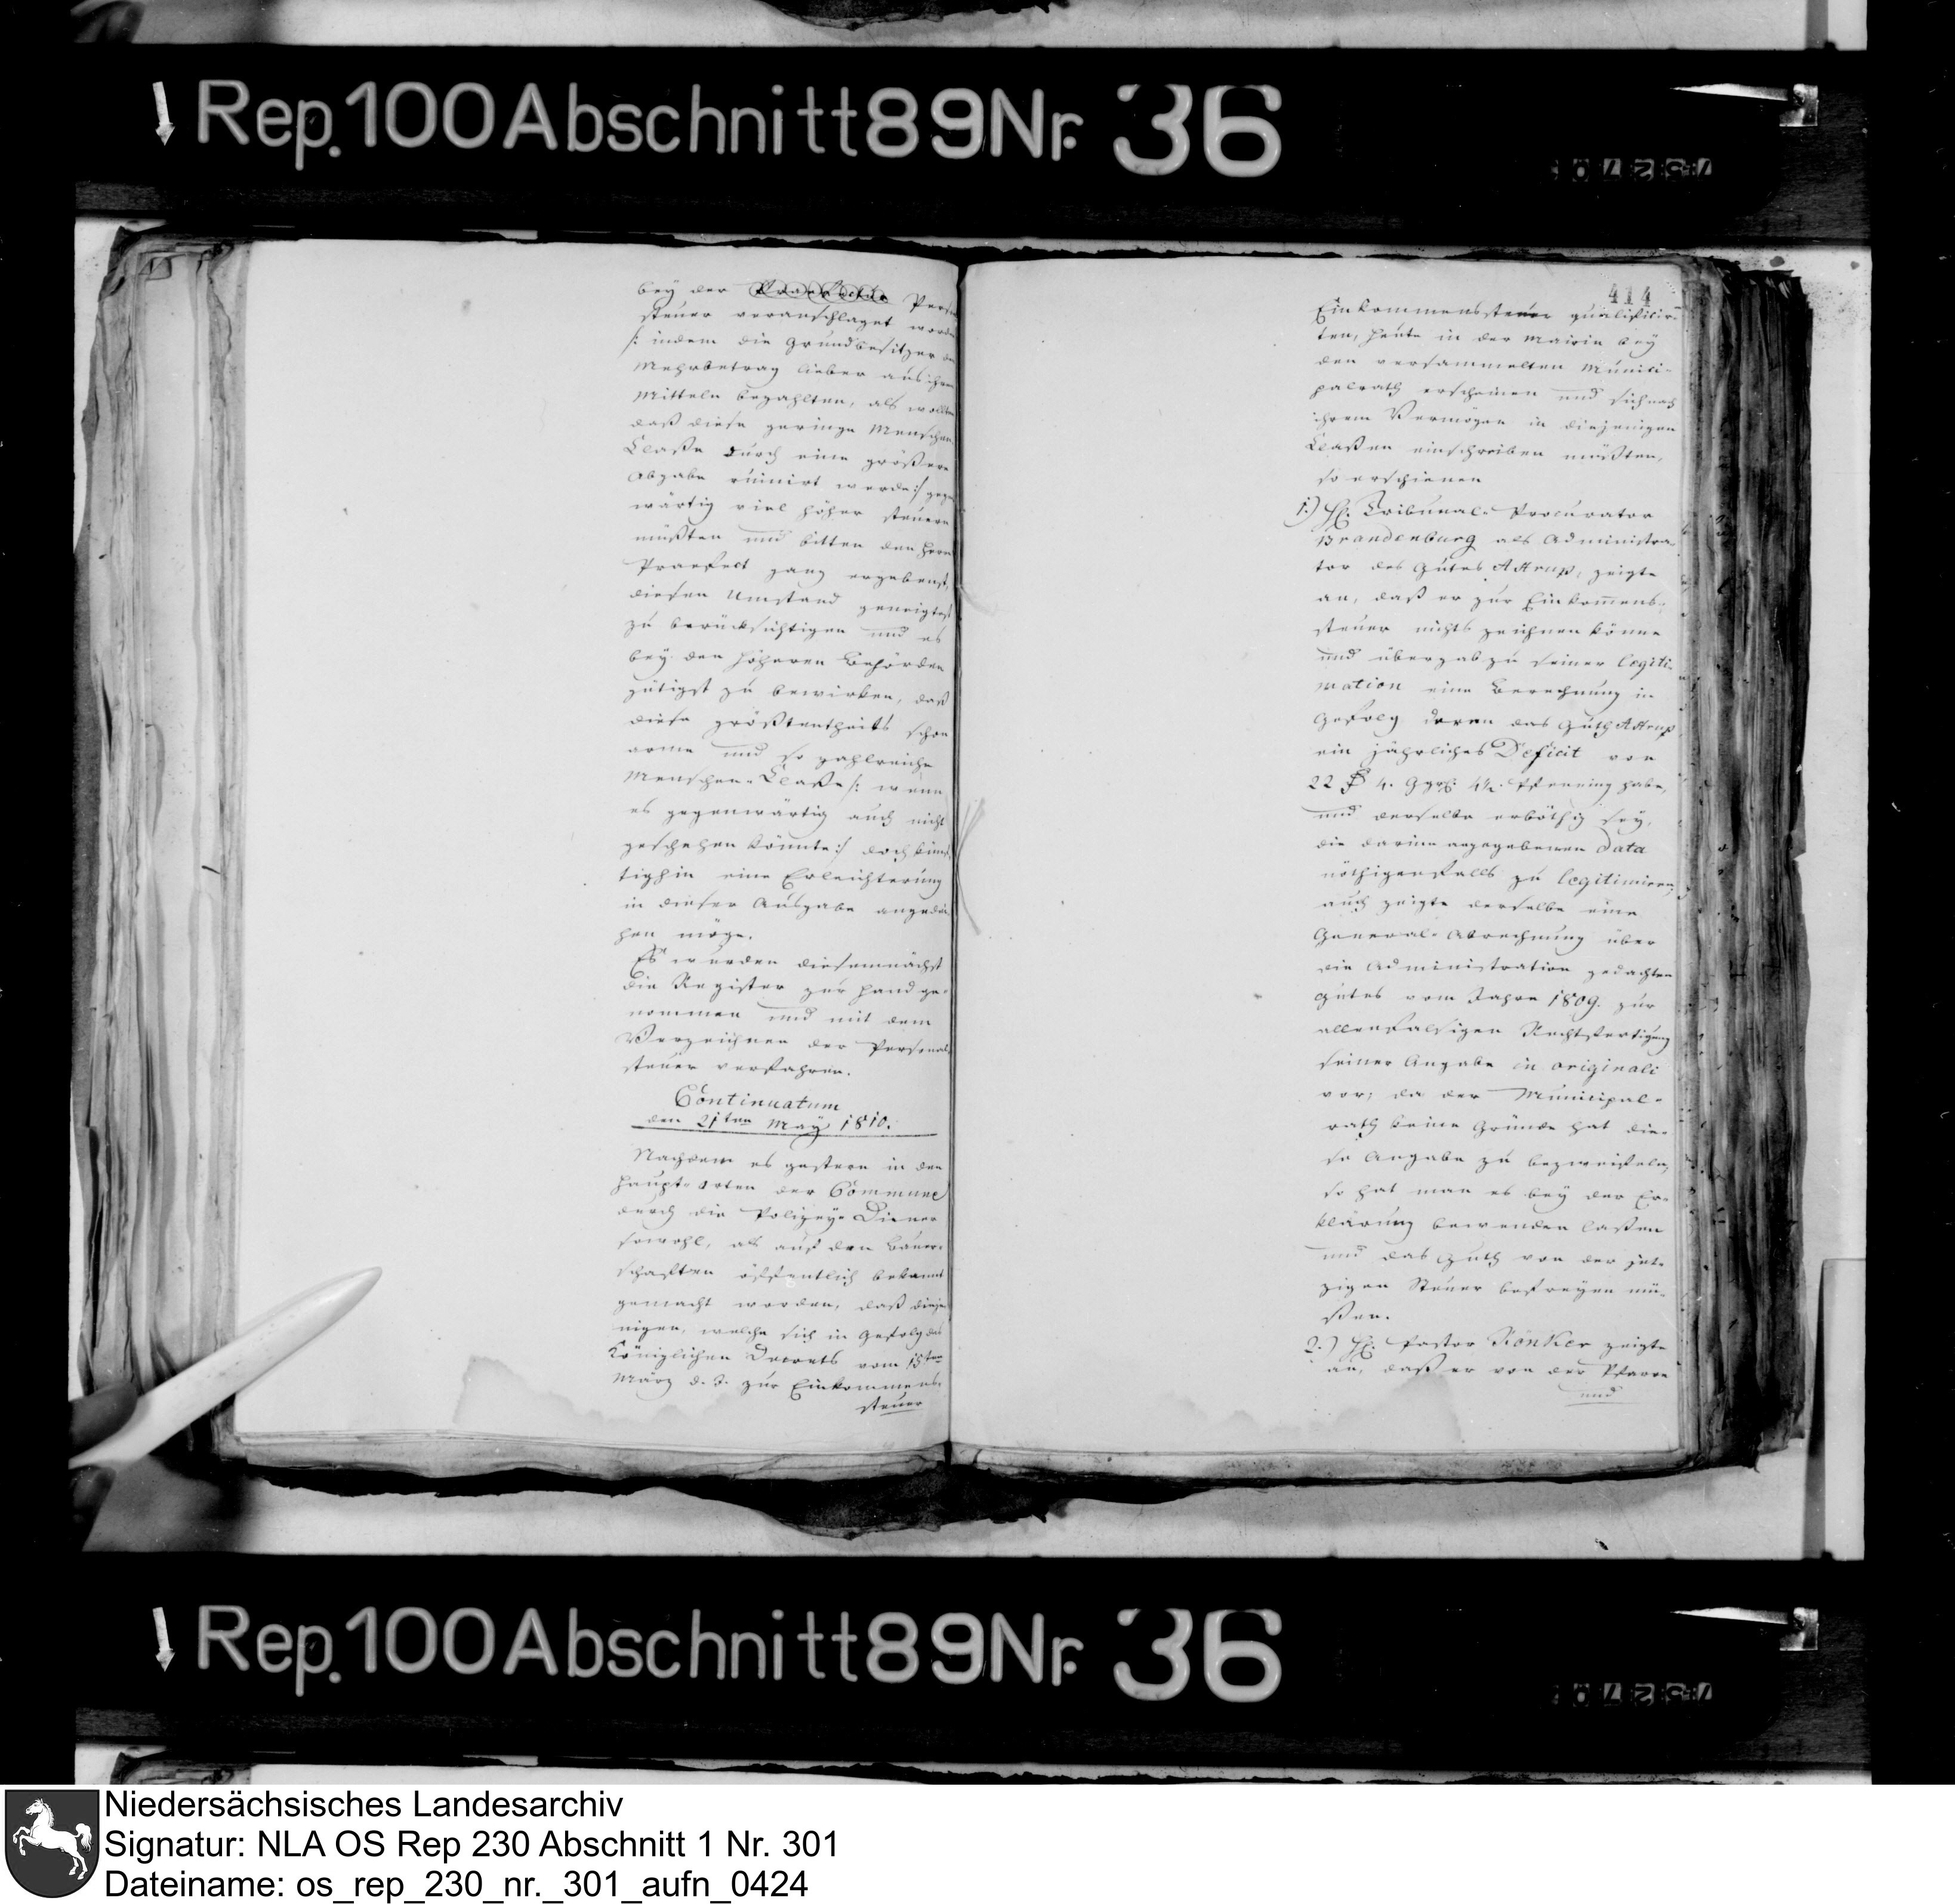 Rep. 100 Abschnitt 89 Nr. 36
bey der Perso
steuer veranschlaget worde
/: indem die Grundbesitzer de
Mehrbetrag lieber aus ihren
Mitteln bezahlten, als wollten
daß diese geringe Menschen
Claße durch eine größere
Abgabe ruinirt werde :/ gege
wärtig viel höher steuern
müßten und bitten den Herrn
Praefect ganz ergebenst,
diesen Umstand geneigtest
zu berücksichtigen und es
bey den höheren Behörden
gütigst zu bewirken, daß
diese größtentheils schon
arme und so zahlreiche
Menschen-Claße /: wenn
es gegenwärtig auch nicht
geschehen könnte :/ doch künf
tighin eine Erleichterung
in dieser Ausgabe angedei
hen möge.
Es wurden diesemnächst
die Register zur Hand ge-
nommen und mit dem
Verzeichnen der Personal
steuer verfahren.
Continuatum
den 21ten May 1810.
Nachdem es gestern in den
Haupt-Orten der Commune
durch die Polizey-Diener
sowohl, als auf den Bauer-
schaften öffentlich bekannt
gemacht worden, daß dieje
nigen, welche sich in Gefolg des
Königlichen Decrets vom 15ten
März d. J. zur Einkommens-
steuer
414
Einkommenssteuer qualificir-
ten, heute in der Mairie bey
den versammelten Munici-
palrath erscheinen und sich nach
ihrem Vermögen in diejenigen
Claßen einschreiben müßten,
so erschienen
1.) H. Tribunal-Procurator
Brandenburg als Administra-
tor des Gutes Attrup, zeigte
an, daß er zur Einkommens-
steuer nichts zeichnen könne
und übergab zu seiner Legiti-
mation eine Berechnung in
Gefolg deren das Guth Attrup
ein jährliches Deficit von
22 4. Ggr. 4 1/2. Pfenning habe,
und derselbe erböthig sey,
die darinn angegebenen Data
nöthigenfalls zu legitimiren,
auch zeigte derselbe eine
General-Abrechnung über
die Administration gedachten
Gutes vom Jahre 1809. zur
allenfalsigen Rechtfertigung
seiner Angabe in originali
vor; da der Municipal-
rath keine Gründe hat die-
se Angabe zu bezweifeln,
so hat man es bey der Er-
klärung bewenden laßen
und das Guth von der jet-
zigen Steuer befreyen mü-
ßen.
2.) H. Pastor Könker zeigte
an, daß er von der Pfarre
und
Rep. 100 Abschnitt 89 Nr. 36
Niedersächsisches Landesarchiv
Signatur: NLA OS Rep 230 Abschnitt 1 Nr. 301
Dateiname: os_rep_230_nr._301_aufn_0424